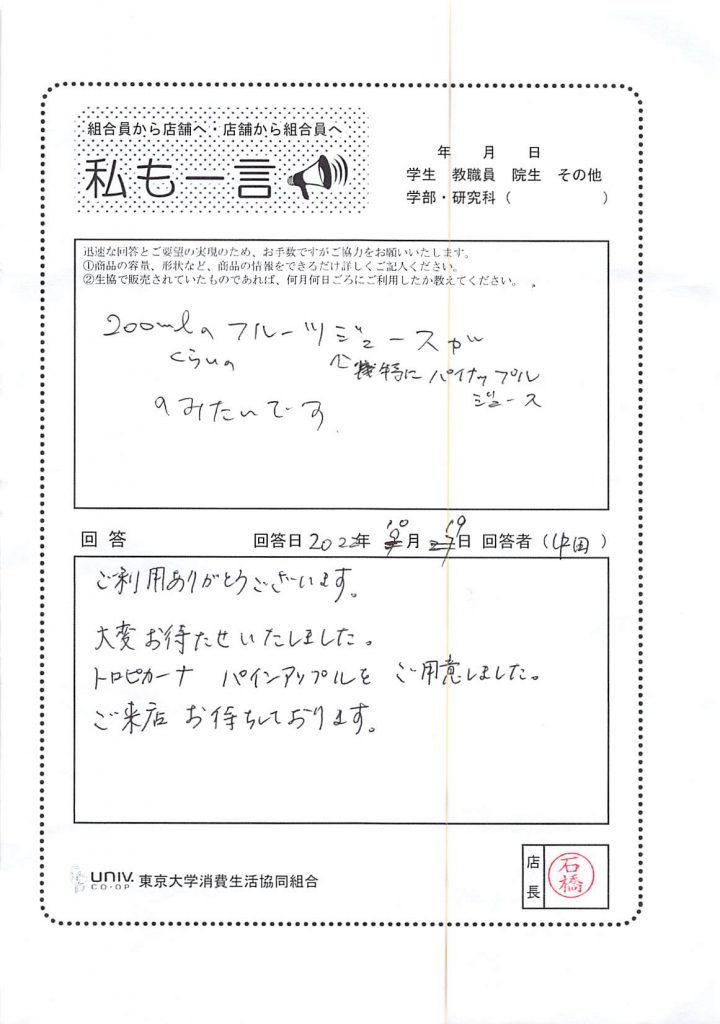 組合員から店舗へ・店舗から組合員へ
私も一言
年 月 日
学生 教職員 院生 その他
学部・研究科( )
迅速な回答とご要望の実現のため、お手数ですがご協力をお願いいたします。
①商品の容量、形状など、商品の情報をできるだけ詳しくご記入ください。
②生協で販売されていたものであれば、何月何日ごろにご利用したか教えてください。
200mlの フルーツジュースが
くらいの
特に パイナップル
ジュース
のみたいです
回答 回答日2022年 10月 19日 回答者(中国)
ご利用ありがとうございます。
大変お待たせいたしました。
トロピカーナ パインアップルを ご用意しました。
ご来店 お待ちしております。
UNIV. CO-OP 東京大学消費生活協同組合
店長
石橋